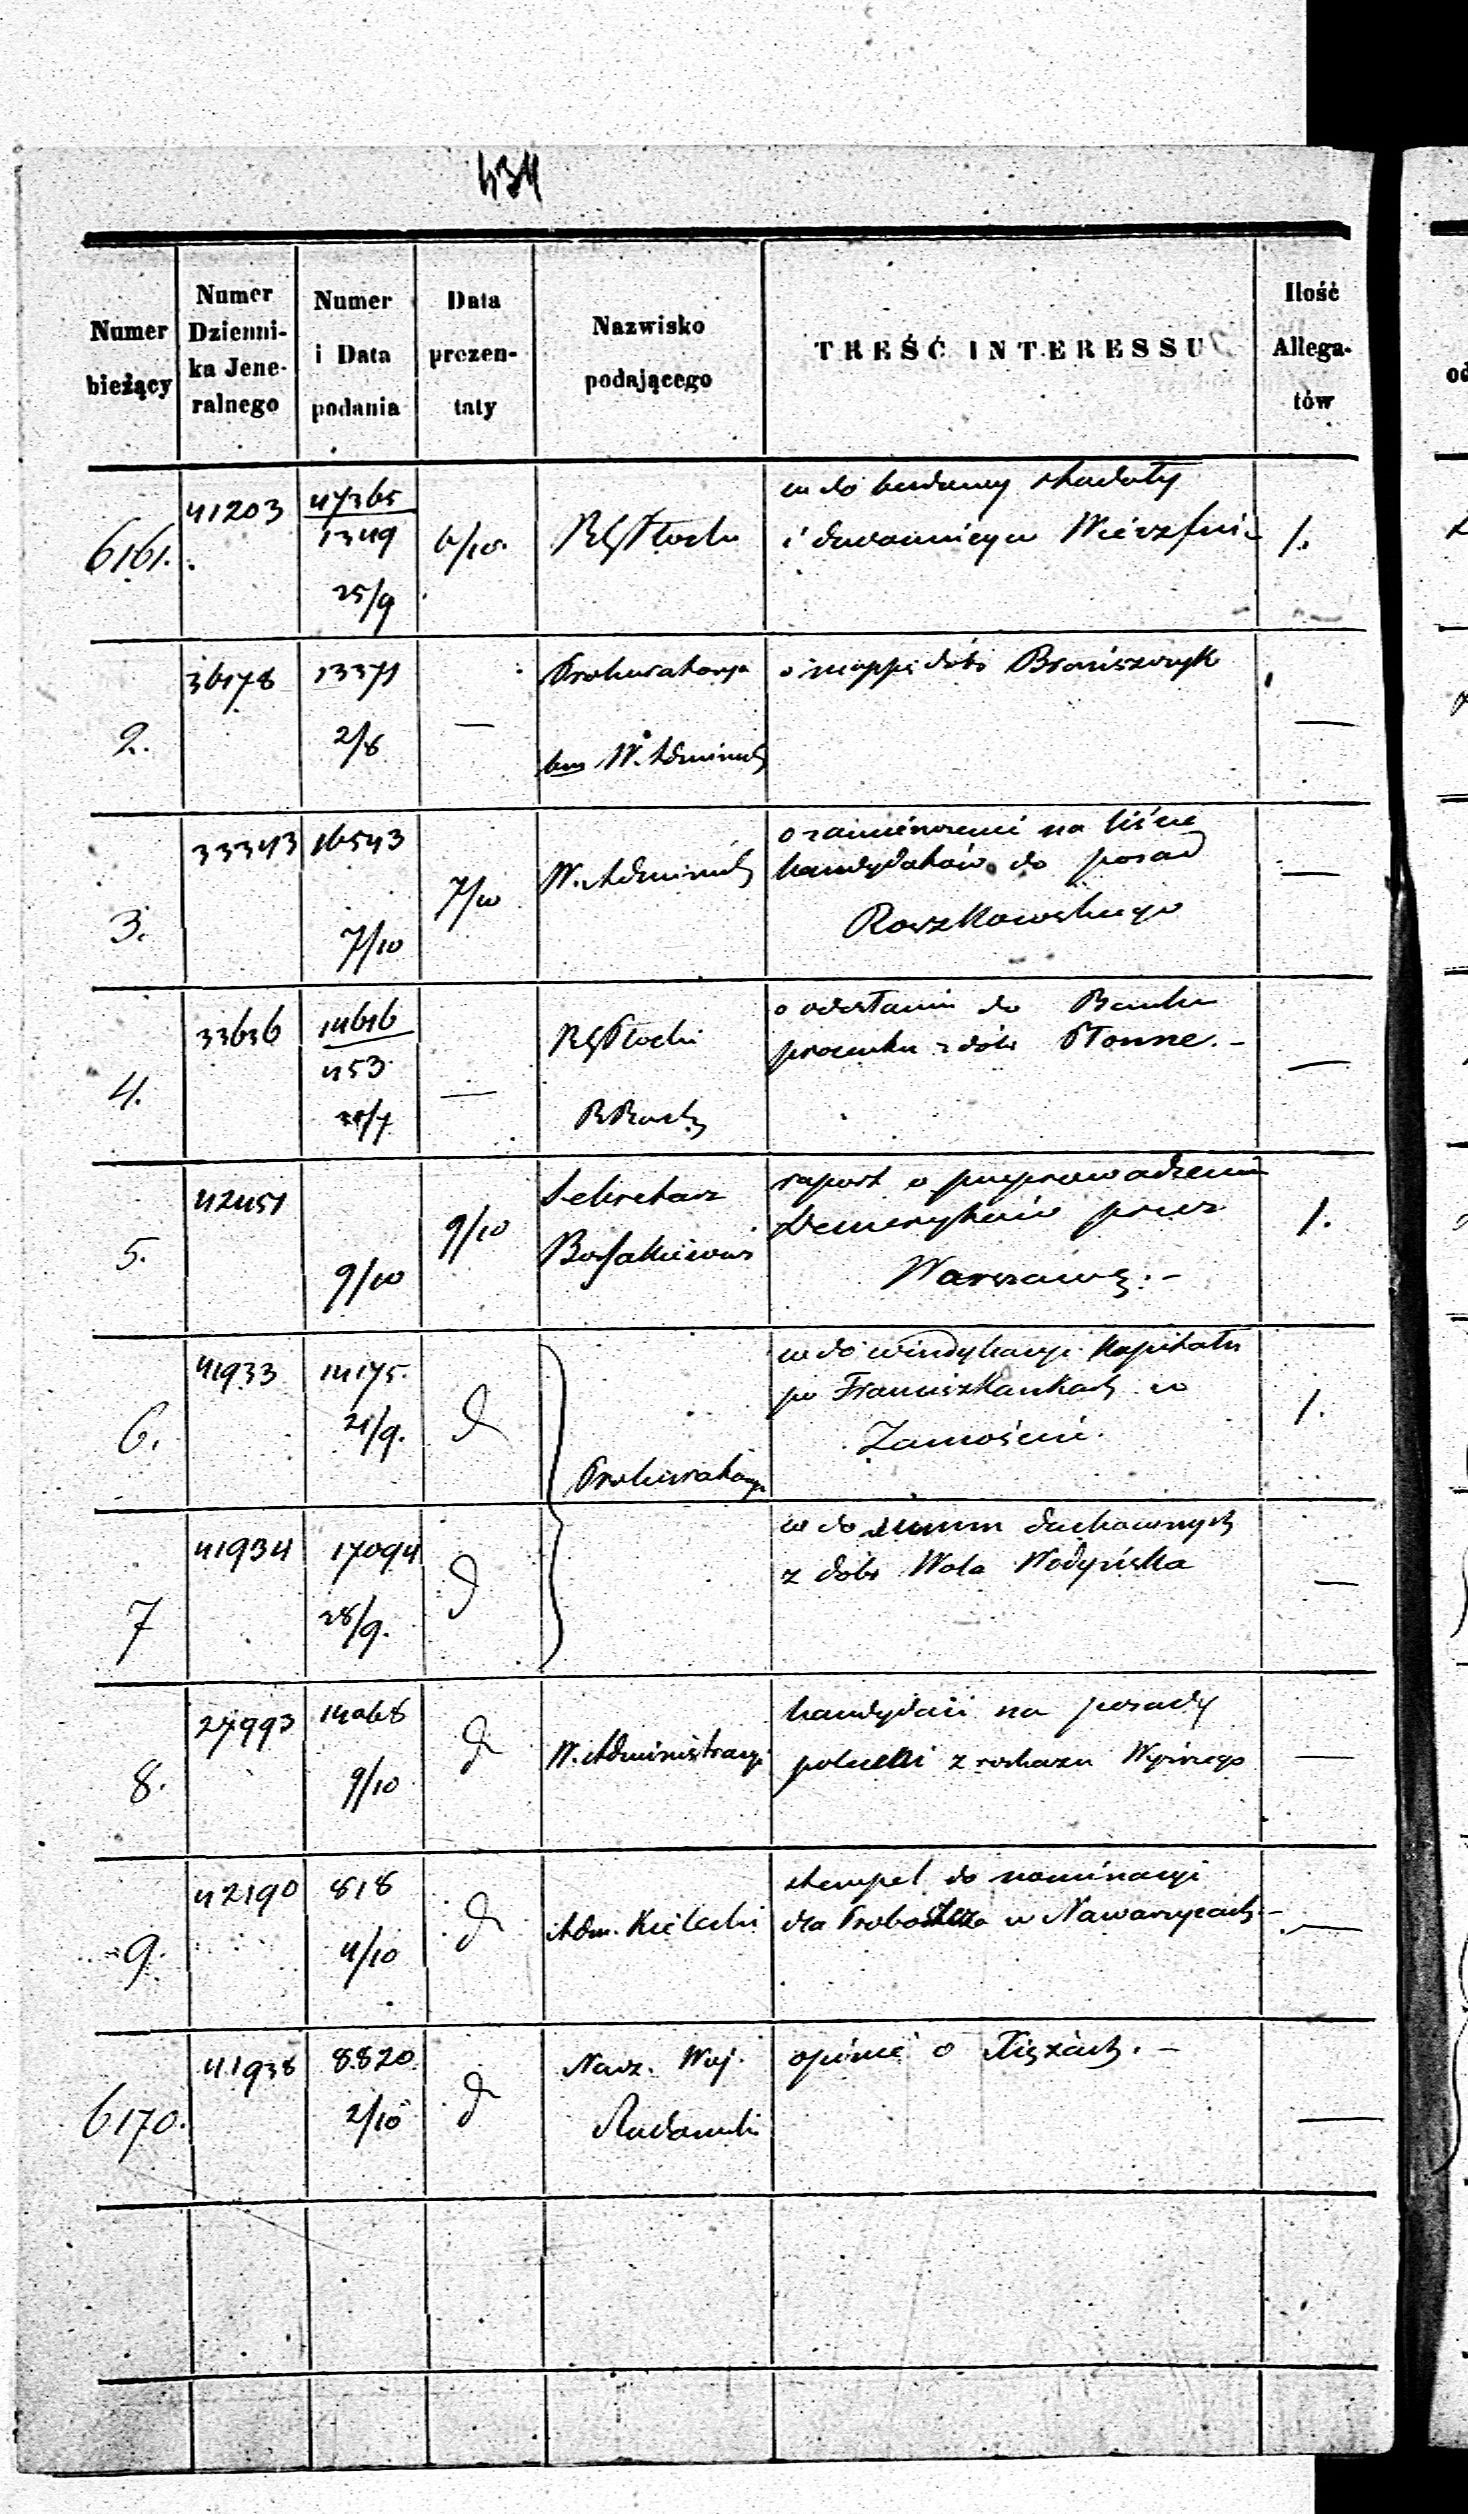 434
Numer bieżący
Numer Dzienni- ka Jene- ralnego
Numer i Data podania
Data prezen- taty
Nazwisko podającego
TREŚĆ INTERESSU
Ilość Allega- tów
6161. 41203 47365 1349 25/9 6/10. RG Płocki
w do budowy stodoły
i 1.
2. 36178 13371 2/8 — Prokuratorya
o mappę dóbr Brańszczyk —
W. Administr
3. 33343 16543 7/10 7/10 W. Administr
o zamieszczenie na liście
kandydatów do posad
Roszkowskiego —
4. 33636 14616 453 — RG Płocki
o odesłanie do Banku
procentu z dóbr Płonne. — —
5. 42451 9/10 9/10 Sekretarz
raport o przeprowadzeniu
Demerytów przez
Warszawę. — 1.
6. 41933 14175. 21/9. d Prokuratorya
w do windykacyi Kapitału
po Franciszkankach w
Zamościu. 1.
7 41934 17094 28/9. d
w do summ duchownych
z dóbr Wola Wodyńska —
8. 27993 14068 9/10 d W. Administracyi
kandydaci na posady
z rozkazu Wyższego —
9. 42190 818 4/10 d Adm. Kielecki
stempel do nominacyi
dla Proboszcza w Nawarzycach — —
6170. 41938 8820 2/10 d Nacz. Woj.
opinie o Xiężach. — —
Radomski